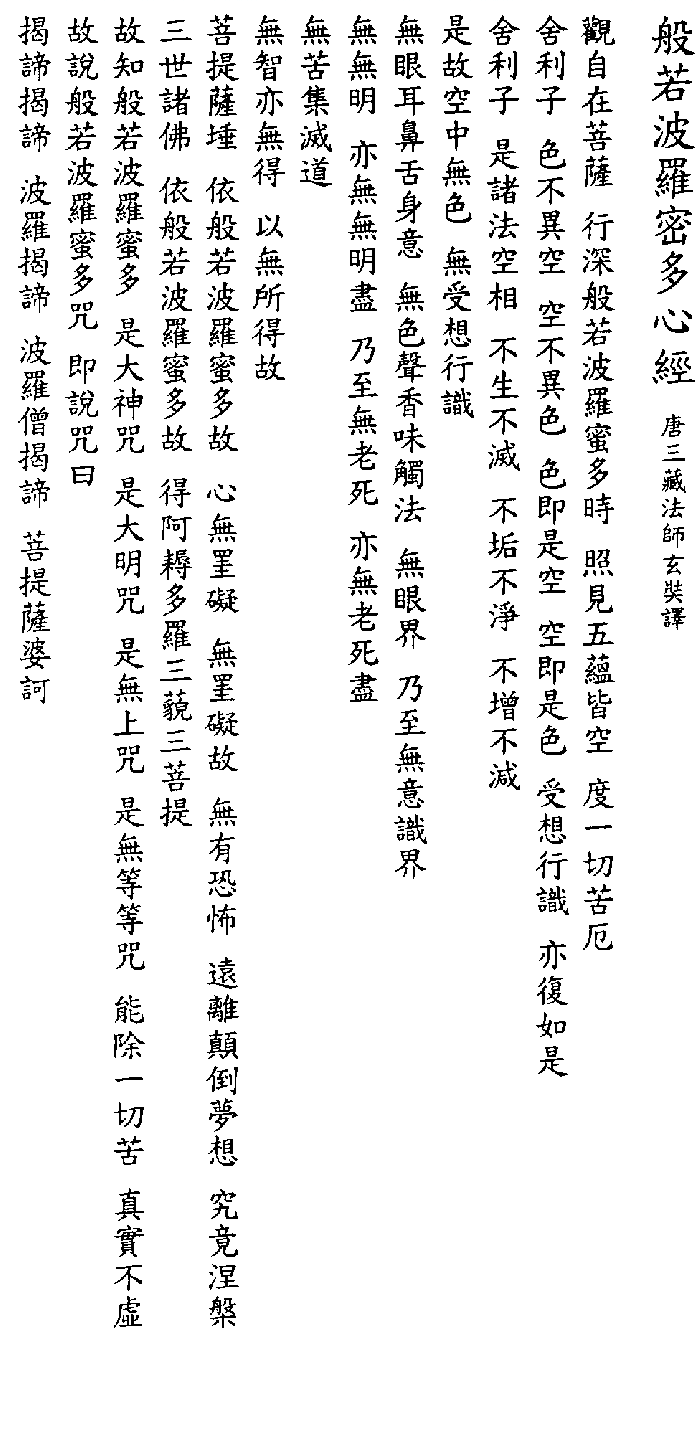 般若波羅密多心經 唐三藏法師玄奘譯
觀自在菩薩 行深般若波羅蜜多時 照見五蘊皆空 度一切苦厄
舍利子 色不異空 空不異色 色即是空 空即是色 受想行識 亦復如是
舍利子 是諸法空相 不生不滅 不垢不淨 不增不減
是故空中無色 無受想行識
無眼耳鼻舌身意 無色聲香味觸法 無眼界 乃至無意識界
無無明 亦無無明盡 乃至無老死 亦無老死盡
無苦集滅道
無智亦無得 以無所得故
菩提薩埵 依般若波羅蜜多故 心無罣礙 無罣礙故 無有恐怖 遠離顛倒夢想 究竟涅槃
三世諸佛 依般若波羅蜜多故 得阿耨多羅三藐三菩提
故知般若波羅蜜多 是大神咒 是大明咒 是無上咒 是無等等咒 能除一切苦 真實不虛
故說般若波羅蜜多咒 即說咒曰
揭諦揭諦 波羅揭諦 波羅僧揭諦 菩提薩婆訶